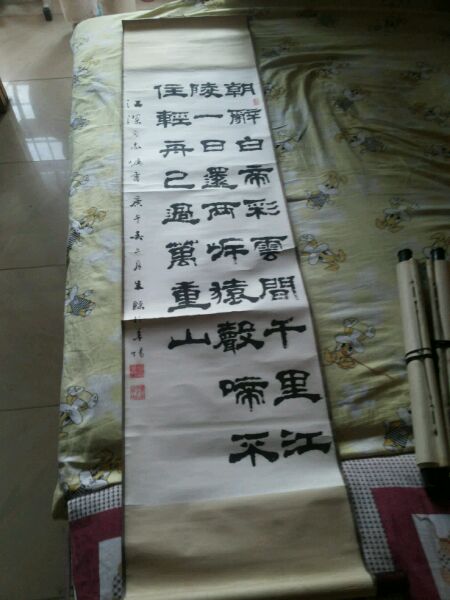 朝辭白帝彩雲間千里江
陵一日還两岸猿聲啼不
住輕舟已過萬重山
同志 書 庚午